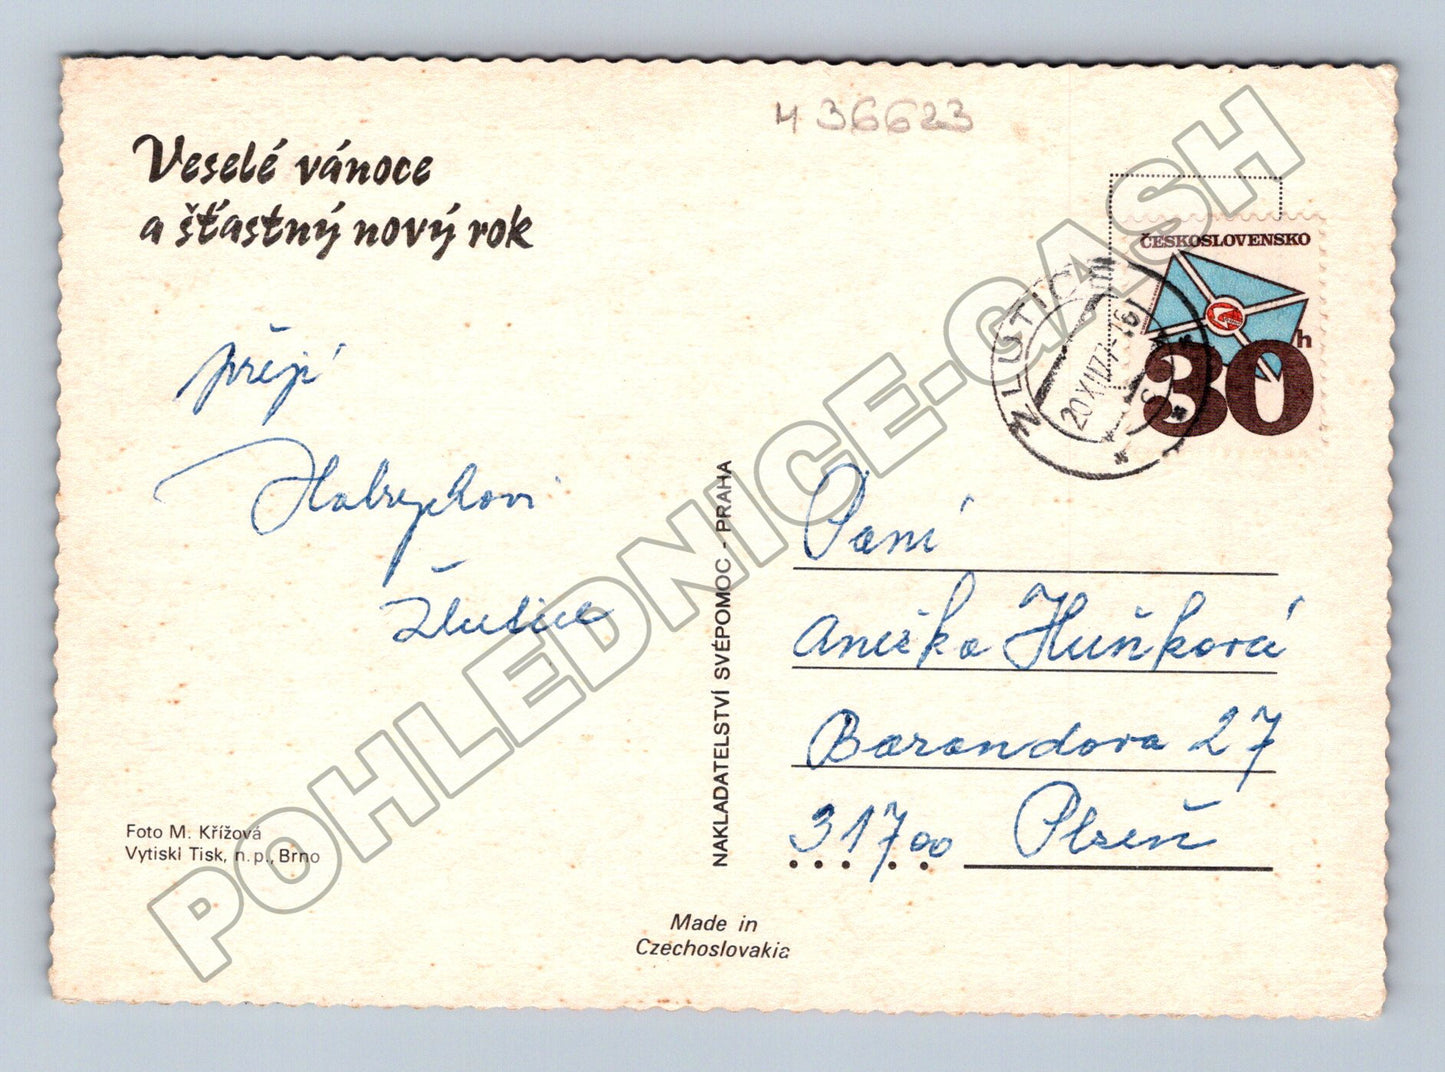 436623
Veselé vánoce
a šťastný nový rok
ČESKOSLOVENSKO
30h
ŽLUTICE
20.XII.77-16
přejí
Žlutice
NAKLADATELSTVÍ SVÉPOMOC - PRAHA
Paní
Anežka Huňková
Barandova 27
317 00 Plzeň
Foto M. Křížová
Vytiskl Tisk, n. p., Brno
Made in
Czechoslovakia
POHLEDNICE-CASH